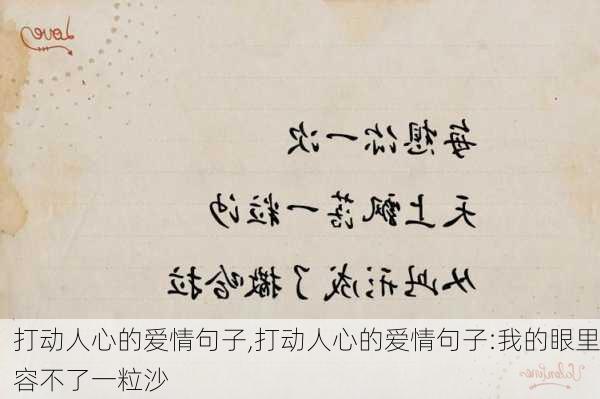 Love
每想你一次
天上飘落一粒沙
从此形成了撒哈拉
打动人心的爱情句子,打动人心的爱情句子:我的眼里
容不了一粒沙
Valentine